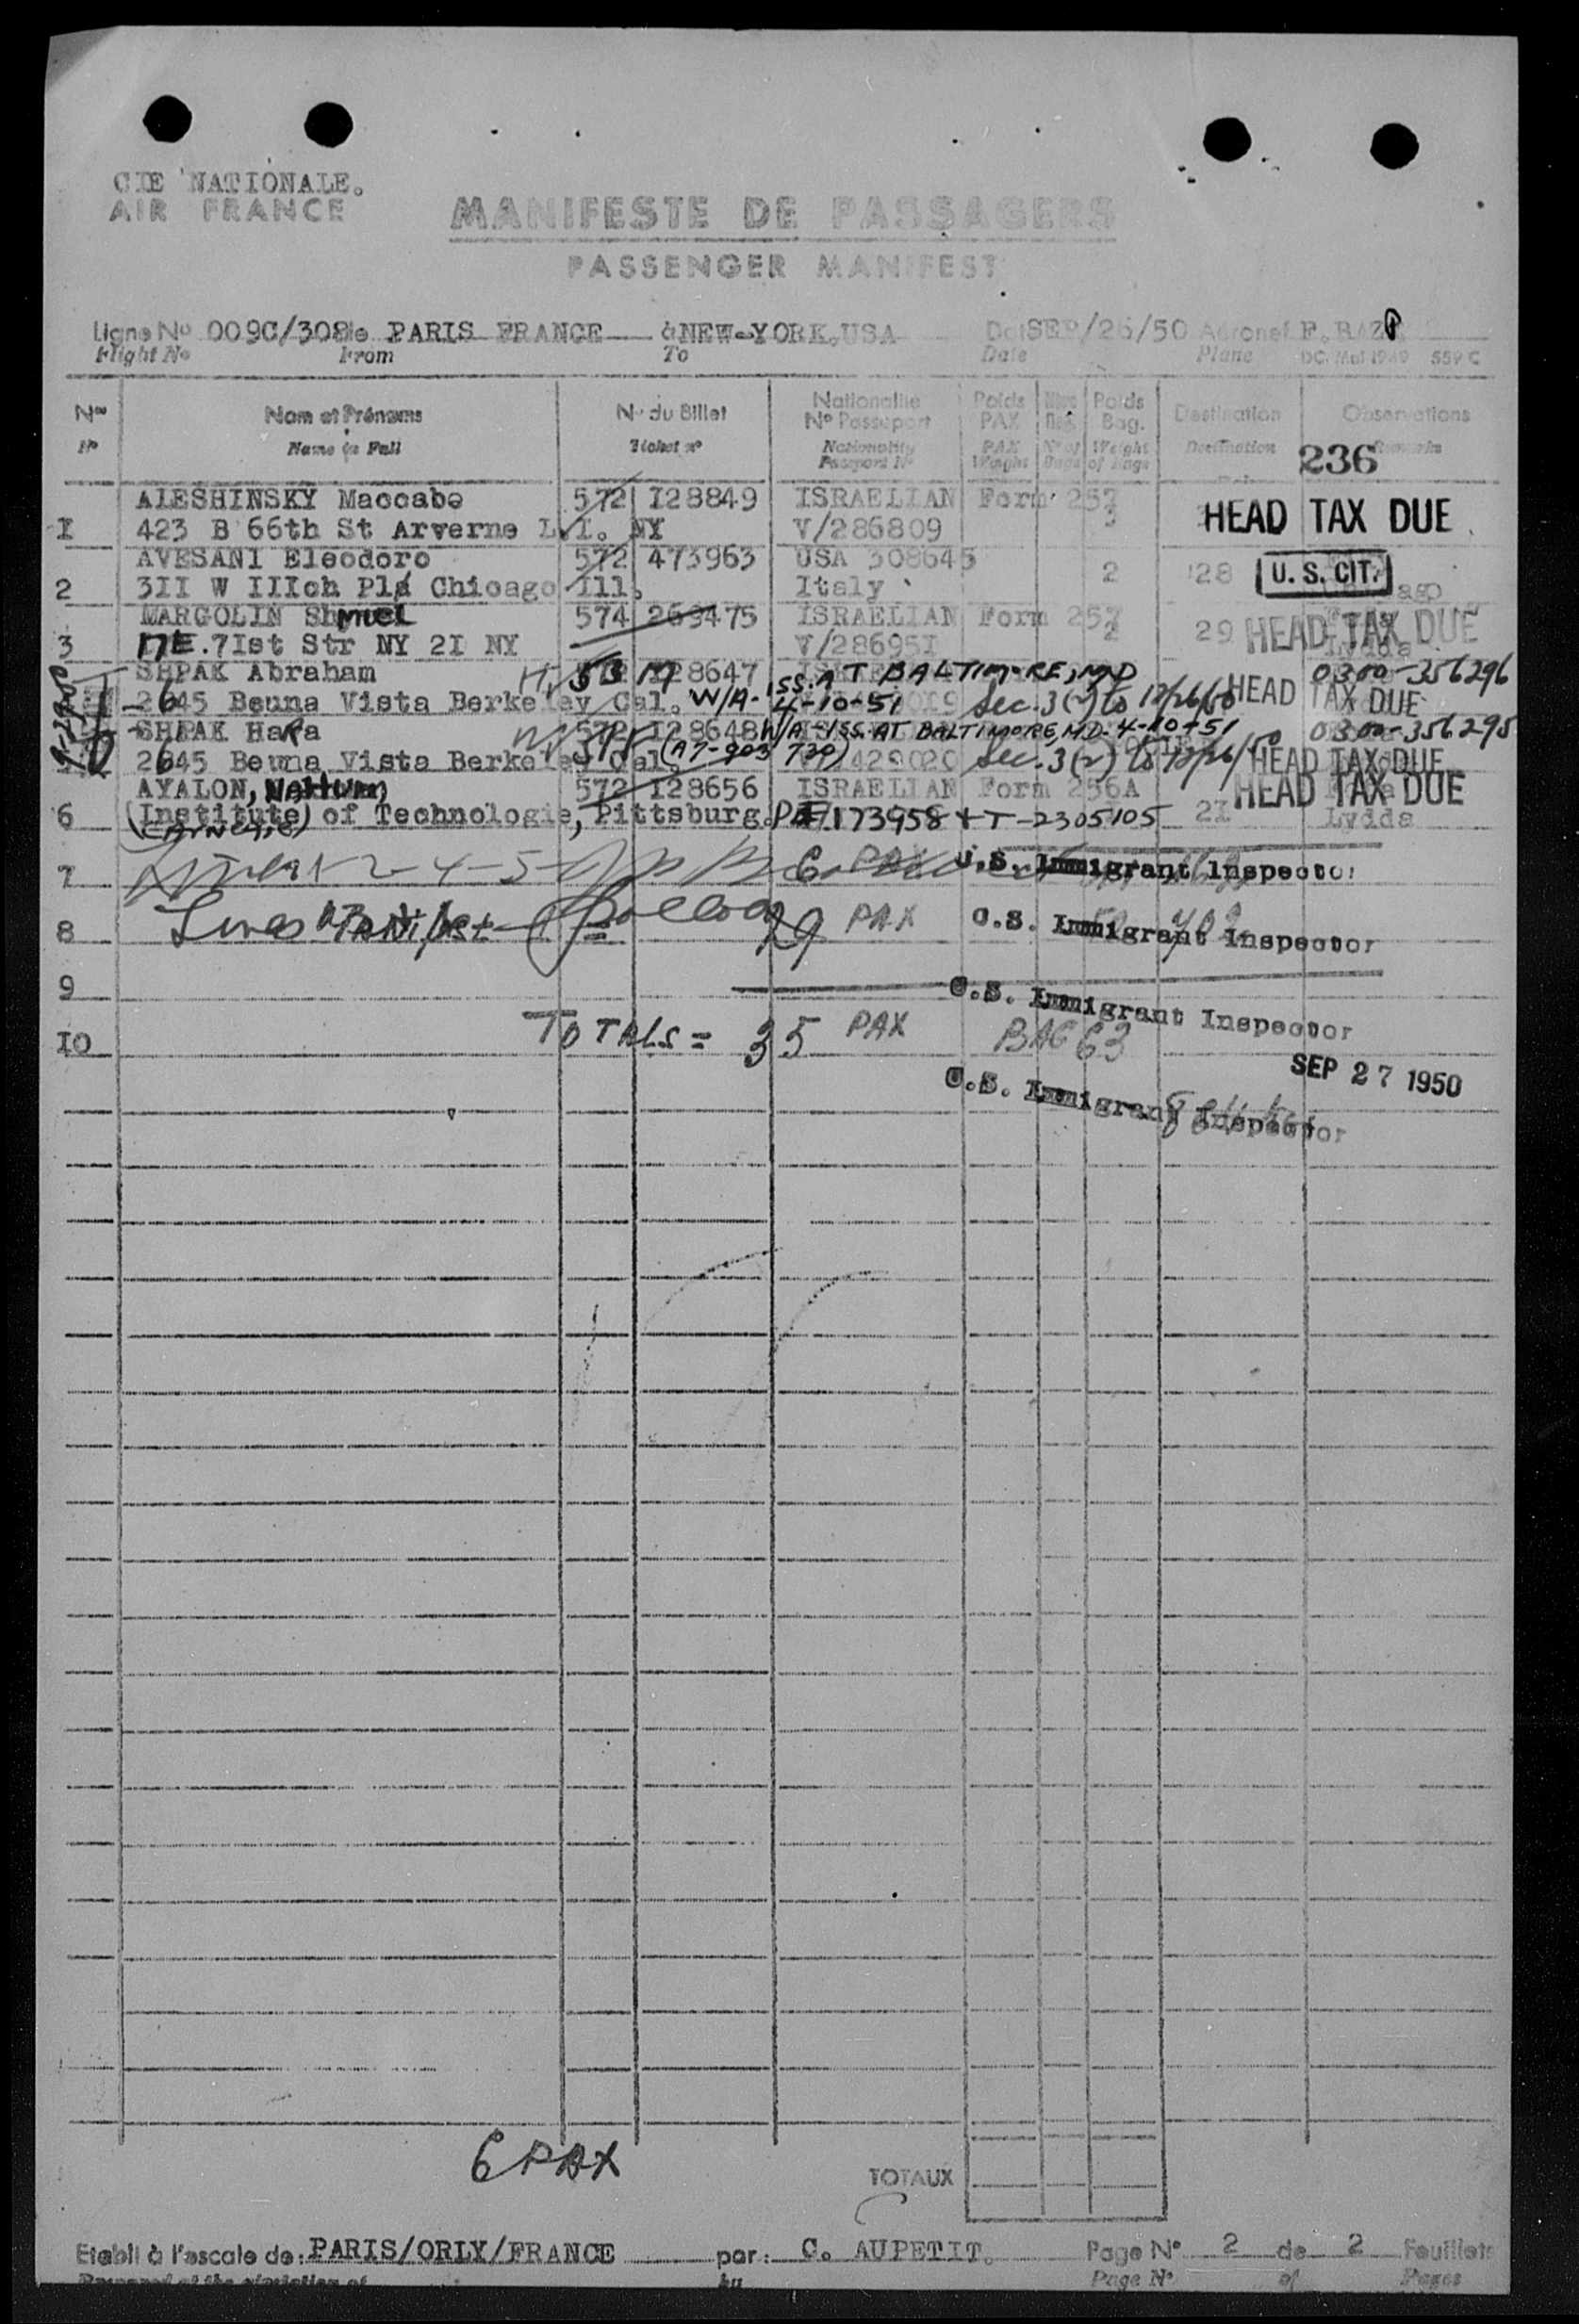 CIE NATIONALE.
AIR FRANCE
MANIFESTE DE PASSAGERS
PASSENGER MANIFEST
Ligne No 009C/308 de PARIS FRANCE à NEW-YORK.USA SEP/26/50 Aéronef F.BAZ
Flight No From To Date Plane DC. Mai 1949 559 C
Nos Nom et Prénoms No du Billet Nationalité No Passeport Poids PAX Poids Bag. Destination Observations
No Name in Full Ticket no Nationality Passport No PAX Weight No of Bags Weight of Bags Destination Remarks
236
ALESHINSKY Maccabe 572 I28849 ISRAELIAN Form 257
I 423 B 66th St Arverne L.I. NY V/286809 3 HEAD TAX DUE
AVESANI Eleodoro 572 473963 USA 308645
2 3II W IIIch Pla Chicago Ill. Italy 2 28 U. S. CIT.
MARGOLIN Shmuel 574 269475 ISRAELIAN Form 257
3 17E.7Ist Str NY 2I NY V/28695I 2 29 HEAD TAX DUE Lydda
SHPAK Abraham I28647 W/A-ISS. AT BALTIMORE, MD 0300-356296
2645 Beuna Vista Berkeley Cal. 4-10-51 Sec. 3(2) to 12/26/50 HEAD TAX DUE
SHPAK HaRa 572 I28648 W/A-ISS. AT BALTIMORE, MD. 4-10-51 0300-356295
2645 Beuna Vista Berkeley Cal. (A7-903 730) V/429020 Sec. 3(2) to 12/26/50 HEAD TAX DUE
AYALON, 572 I28656 ISRAELIAN Form 256A HEAD TAX DUE
6 (Institute) of Technologie, Pittsburg. Pa 173958 + T-2305105 2I Lydda
(CARNEGIE)
7 2-4-5 6 PAX U.S. Immigrant Inspector
8 29 PAX U.S. Immigrant Inspector
9 U.S. Immigrant Inspector
IO TOTALS = 35 PAX BAG 63
SEP 27 1950
U.S. Immigrant Inspector
6 PAX
TOTAUX
Etabli à l'escale de: PARIS/ORLY/FRANCE par: C. AUPETIT. Page No 2 de 2 Feuillets
Prepared at the station of by Page No of Pages